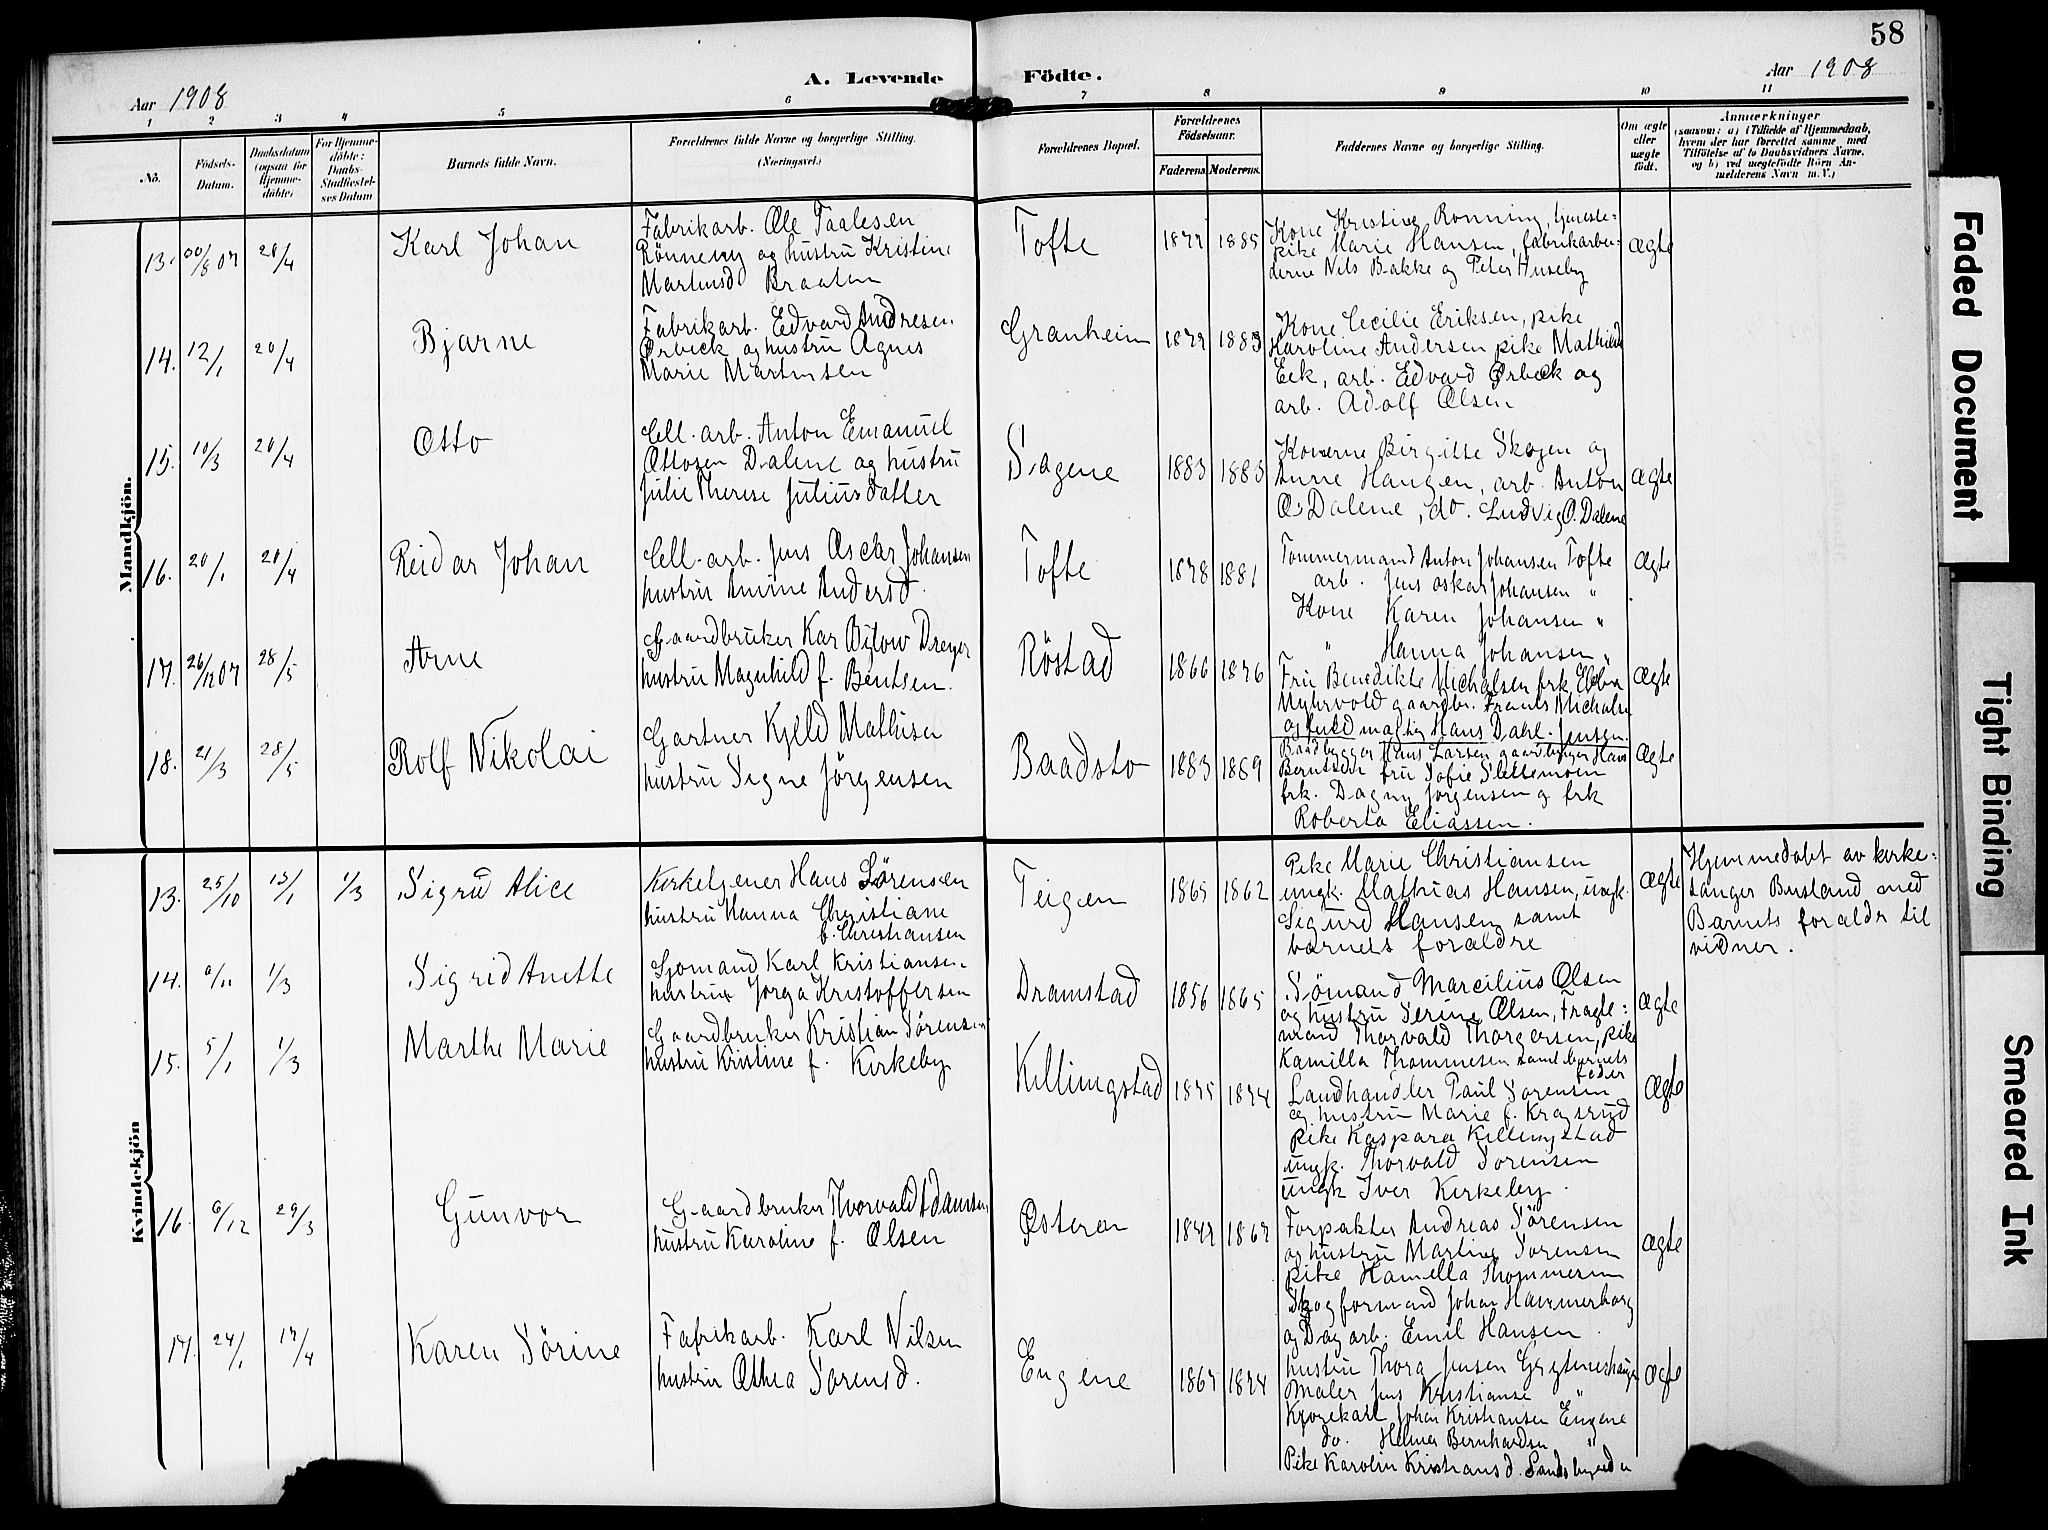 58
A. Levende Födte.
Aar 1908
Aar 1908
1 2 3 4 5 6 7 8 9 10 11
No.
Födsels-Datum.
Daabsdatum (ogsaa for Hjemme-döbte)
For Hjemme-döbte: Daabs-Stadfæstel-ses Datum
Barnets fulde Navn.
Forældrenes fulde Navne og borgerlige Stilling.
(Næringsvei.)
Forældrenes Bopæl.
Forældrenes Födselsaar.
Faderens. Moderens.
Faddernes Navne og borgerlige Stilling.
Om ægte eller uægte födt.
Anmærkninger
(saasom: a) i Tilfælde af Hjemmedaab,
hvem der har forrettet samme med
Tilföielse af to Daabsvidners Navne,
og b) ved uægtefödte Börn An-
melderens Navn m. V.)
Mandkjön.
13. 20/4
Karl Johan
Fabrikarb. Ole Paalesen
Rönneng og hustru Kristine
Braaten
Tofte
1877 1885
Kone Kristine Ronning, tjeneste=
pike Marie Hansen, fabrikarbei=
derne Nils Bakke og Peter Huseby
ægte
14. 12/1 20/4
Bjarne
Fabrikarb. Edvard Andresen
Ørbeck og hustru Agnes
Marie Martinsen
Granheim
1879 1883
Kone Cecilie Eriksen, pike
Karoline Andersen pike Mathilde
Eek, arb. Edvard Ørbeck og
arb. Adolf Olsen
15. 10/3 20/4
Otto
Cell. arb. Anton Emanuel
Ottosen Dalene og hustru
Julie Therese Juliusdatter
Sagene
1883 1883
Konerne Birgitte Skogen og
Anne Haugen, arb. Anton
O. Dalene, do. Ludvig O. Dalene
ægte
16. 20/1 20/4
Reidar Johan
Cell. arb. Jens Oscar Johansen
hustru Amine Andersd.
Tofte
1878 1881
Tommermand Anton Johansen Tofte
arb. Jens oskar Johansen "
Kone Karen Johansen "
" Hanna Johansen "
ægte
17. 26/12 07 28/5
Arne
Gaardbruker Kar Bylow Dreyer
hustru Magnhild f. Bentsen.
Röstad
1866 1876
Fru Benedikte Michalsen frk Ebba
Myhrvold gaardbr. Frants Michalsn
og fuldmægtig Hans Dahl-Jensen.
ægte
18. 21/3 28/5
Rolf Nikolai
Gartner Kjeld Mathisen
hustru Signe Jörgensen
Baadsto
1883 1889
Baadbygger Hans Larsen gaardbruger Hans
Berntsen fru Sofie Slettemoen
frk. Dagny Jorgensen og frk
Roberta Eliassen.
ægte
Kvindekjön
13. 25/10 13/1 1/3
Sigrid Alice
Kirketjener Hans Sörensen
hustru Hanna Christiane
f. Christiansen
Teigen
1865 1862
Pike Marie Christiansen
ungk. Mathias Hansen, ungk.
Sigurd Hansen samt
barnets foraldre
ægte
Hjemmedøbt av kirke=
sanger Busland med
Barnets foraldr til
vidner.
14. 6/11 1/3
Sigrid Anette
Sjomand Karl Kristiansen
hustru Jorga Kristoffersen
Dramstad
1856 1865
Sömand Marcilius Olsen
og hustru Serine Olsen, Fragte=
mand Thorvald Thorgersen, pike
Kamilla Thommesen samt barnets
feder
ægte
15. 5/1 1/3
Marthe Marie
Gaardbruker Kristian Sörensen
hustru Kristine f. Kirkeby
Killingstad
1875 1874
Landhandler Paul Sorensen
og hustru Marie f. Krogsrud
pike Kaspara Killingstad
ungk. Thorvald Sorensen
ungk Iver Kirkeby.
ægte
16. 6/12 29/3
Gunvor
Gaardbruker Thorvald Adamsen
hustru Karoline f. Olsen
Osteren
1867
Forpakter Andreas Sörensen
og hustru Martine Sorensen
pike Kamella Thommesen
Skogformand Johan Hammerborg
og Dagarb. Emil Hansen.
ægte
17. 24/1 17/4
Karen Sörine
Fabrikarb. Karl Nilsen
hustru Othea Sorensd.
Engene
1867 1874
hustru Thora Jensen Grytneshaugen
Maler Jens Kristianse "
Kjorekarl Johan Kristiansen Engene
do. Helmer Bernhardsn "
Pike Karolin Kristiansd.
ægte
Faded Document
Tight Binding
Smeared Ink